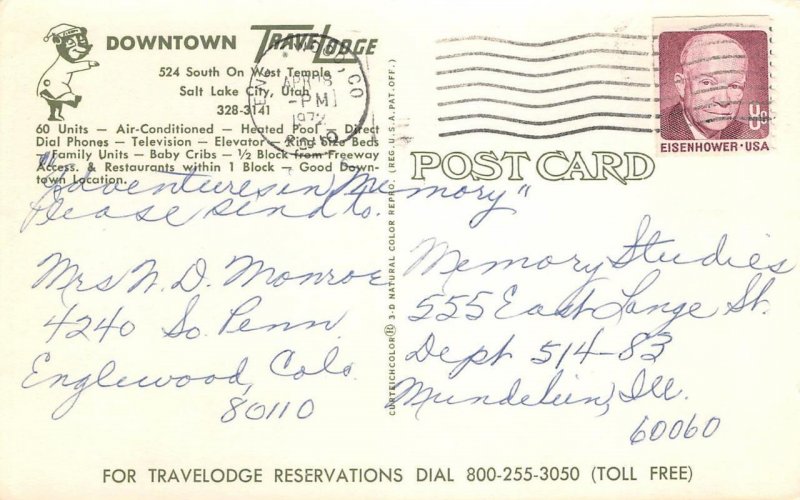 DOWNTOWN TRAVELODGE
524 South On West Temple
Salt Lake City, Utah
328-3141
60 Units — Air-Conditioned — Heated Pool — Direct
Dial Phones — Television — Elevator — King Size Beds
— Family Units — Baby Cribs — ½ Block from Freeway
Access. & Restaurants within 1 Block — Good Down-
town Location.
APR 28
PM
1972
CO
8¢
EISENHOWER·USA
POST CARD
"Adventures in Memory"
Please send to.
Mrs N. D. Monroe
4240 So. Penn.
Englewood, Colo
80110
CURTEICHCOLOR® 3-D NATURAL COLOR REPRO. (REG. U.S.A. PAT. OFF.)
Memory Studies
555 East Lange St.
Dept 514-83
Mundelein, Ill.
60060
FOR TRAVELODGE RESERVATIONS DIAL 800-255-3050 (TOLL FREE)